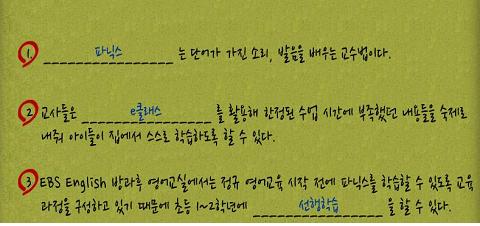 1. 파닉스 는 단어가 가진 소리, 발음을 배우는 교수법이다.
2. 교사들은 e클래스 를 활용해 한정된 수업 시간에 부족했던 내용들을 숙제로
내줘 아이들이 집에서 스스로 학습하도록 할 수 있다.
3. EBS English 방과후 영어교실에서는 정규 영어교육 시작 전에 파닉스를 학습할 수 있도록 교육
과정을 구성하고 있기 때문에 초등 1~2학년에 선행학습 을 할 수 있다.